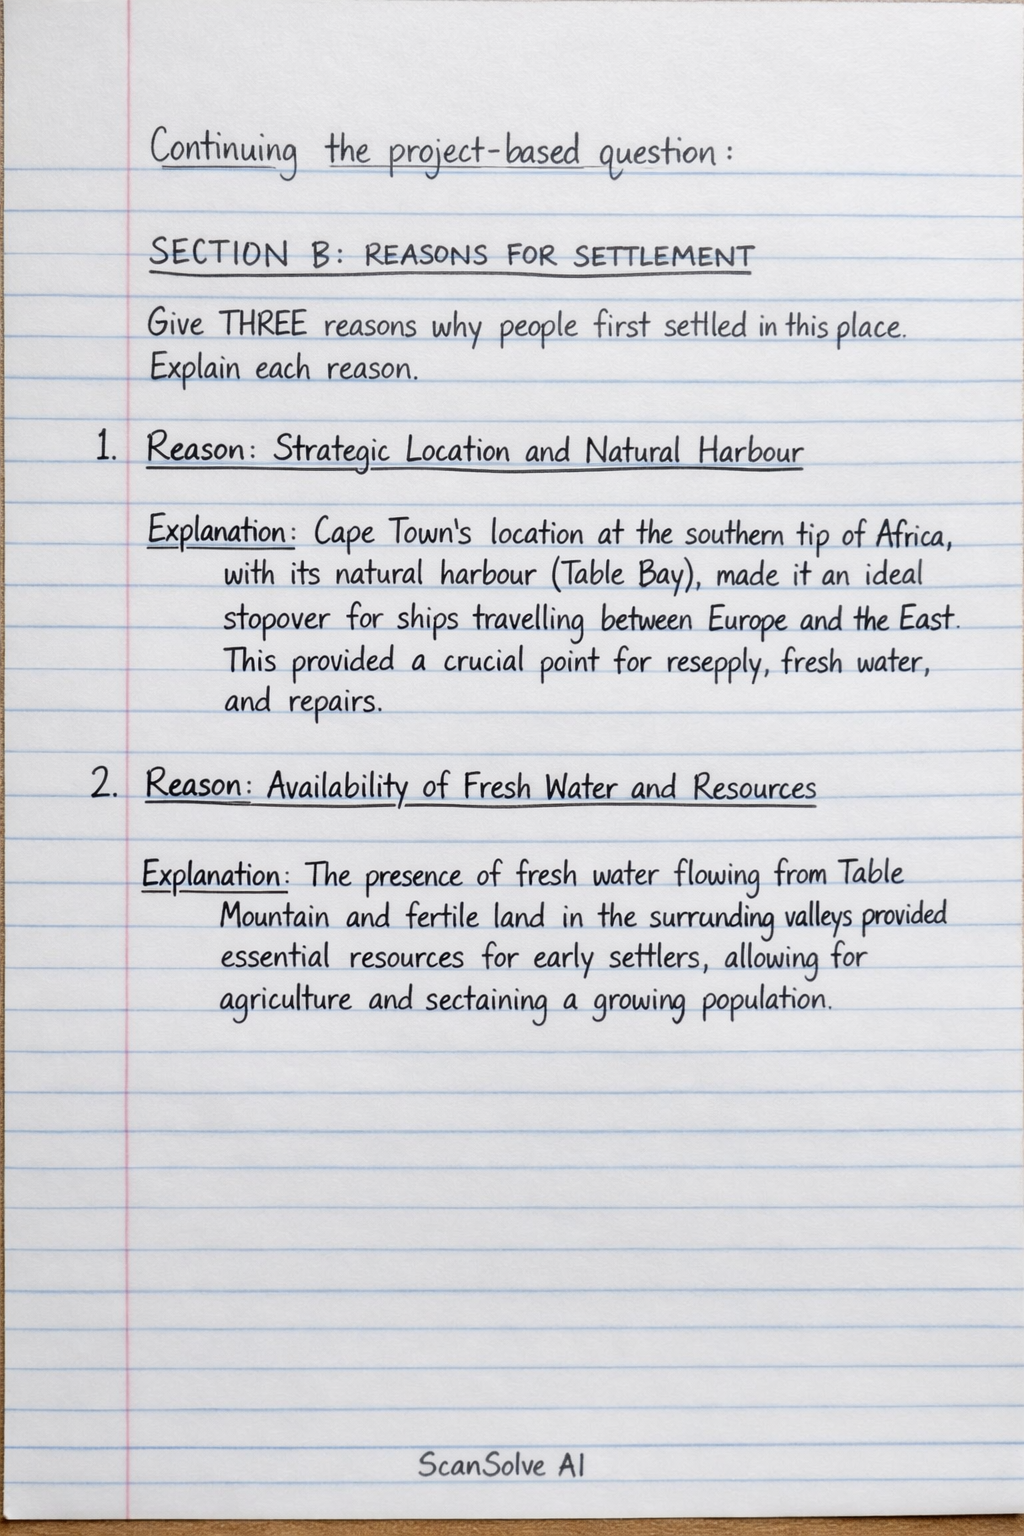 Continuing the project-based question:
SECTION B: REASONS FOR SETTLEMENT
Give THREE reasons why people first settled in this place.
Explain each reason.
1. Reason: Strategic Location and Natural Harbour
Explanation: Cape Town's location at the southern tip of Africa,
with its natural harbour (Table Bay), made it an ideal
stopover for ships travelling between Europe and the East.
This provided a crucial point for resepply, fresh water,
and repairs.
2. Reason: Availability of Fresh Water and Resources
Explanation: The presence of fresh water flowing from Table
Mountain and fertile land in the surrunding valleys provided
essential resources for early settlers, allowing for
agriculture and sectaining a growing population.
ScanSolve AI